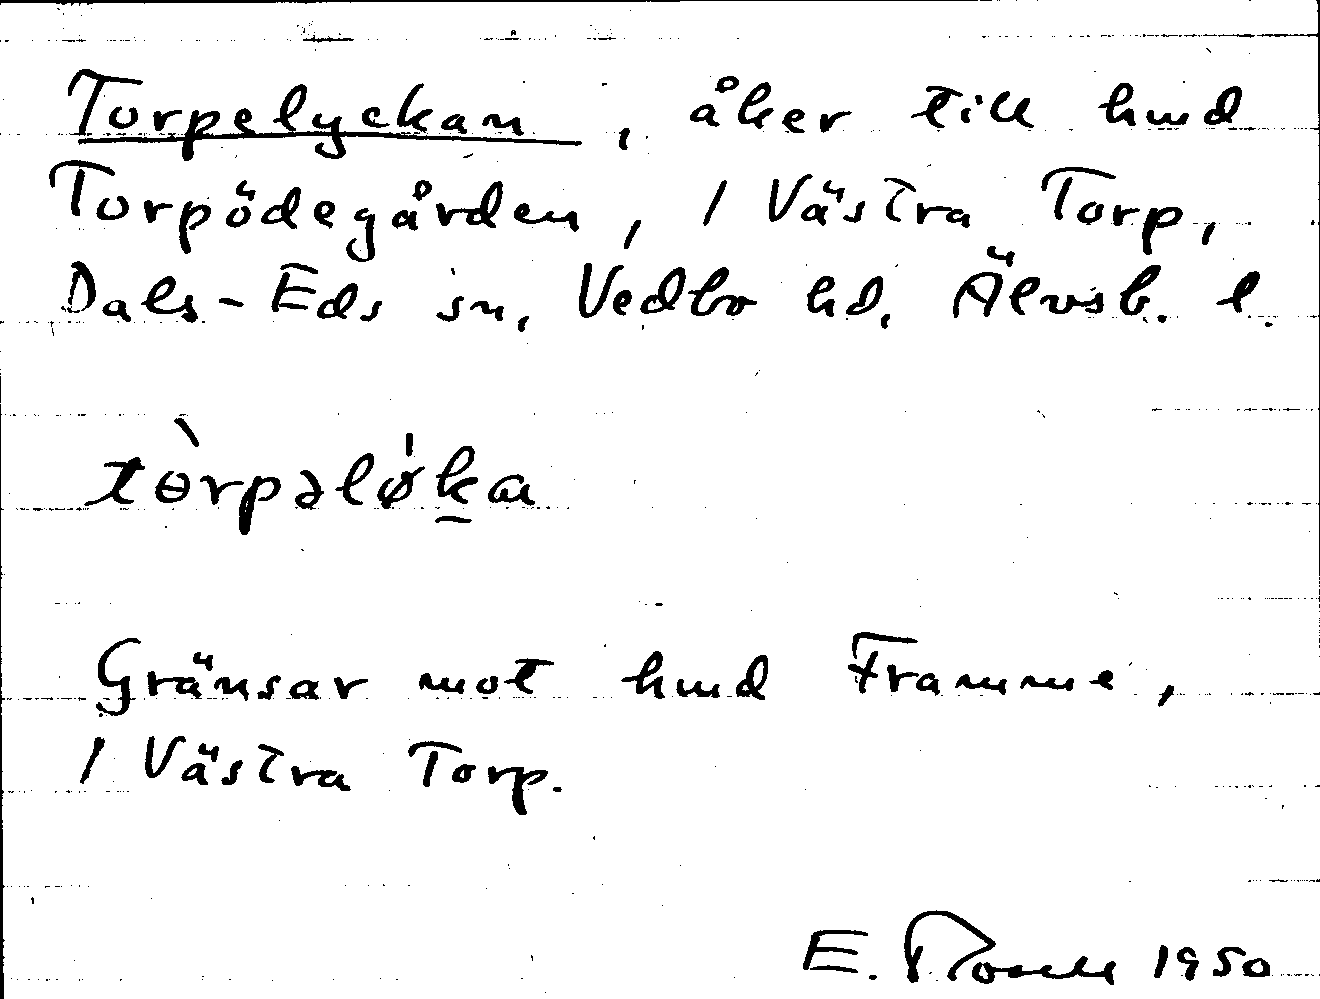 Torpelyckan, åker till hmd
Torpödegården, 1 Västra Torp,
Dals-Eds sn, Vedbo hd, Älvsb. l.
tòrpəlø̍ka
Gränsar mot hmd Framme,
1 Västra Torp.
E. 1950